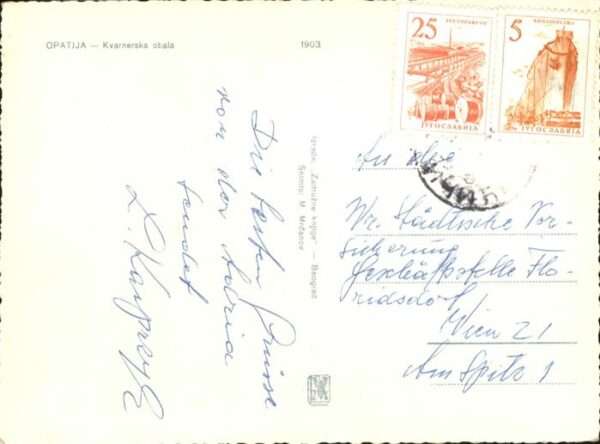 OPATIJA — Kvarnerska obala
1903
25
JUGOSLAVIJA
5
ЈУГОСЛАВИЈА
Die besten Grüsse
von der Adria
sendet
Izdaje: „Zadružna knjiga" — Beograd
Snimio: M. Mrčanov
An die
Wr. Städtische Ver-
sicherung
Geschäftsstelle Flo-
ridsdorf
Wien 21
Am Spitz 1